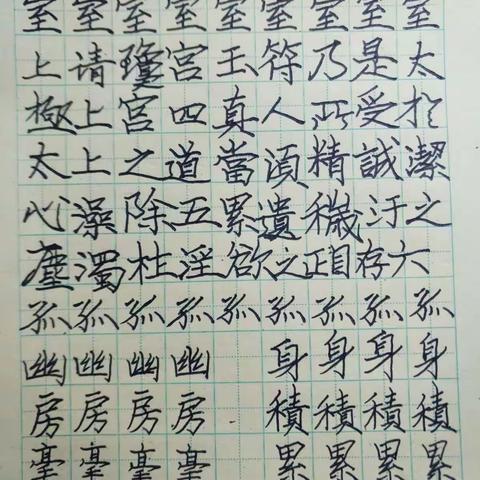 室室室室室室室室室
上请瓊宫玉符乃是太
極上宫四真人所受於
太上之道當須精誠潔
心澡除五累遺穢汙之
塵濁杜淫欲之正目存六
孤孤孤孤孤孤孤孤孤
幽幽幽幽 身身身身
房房房房 積積積積
毫毫毫毫 累累累累